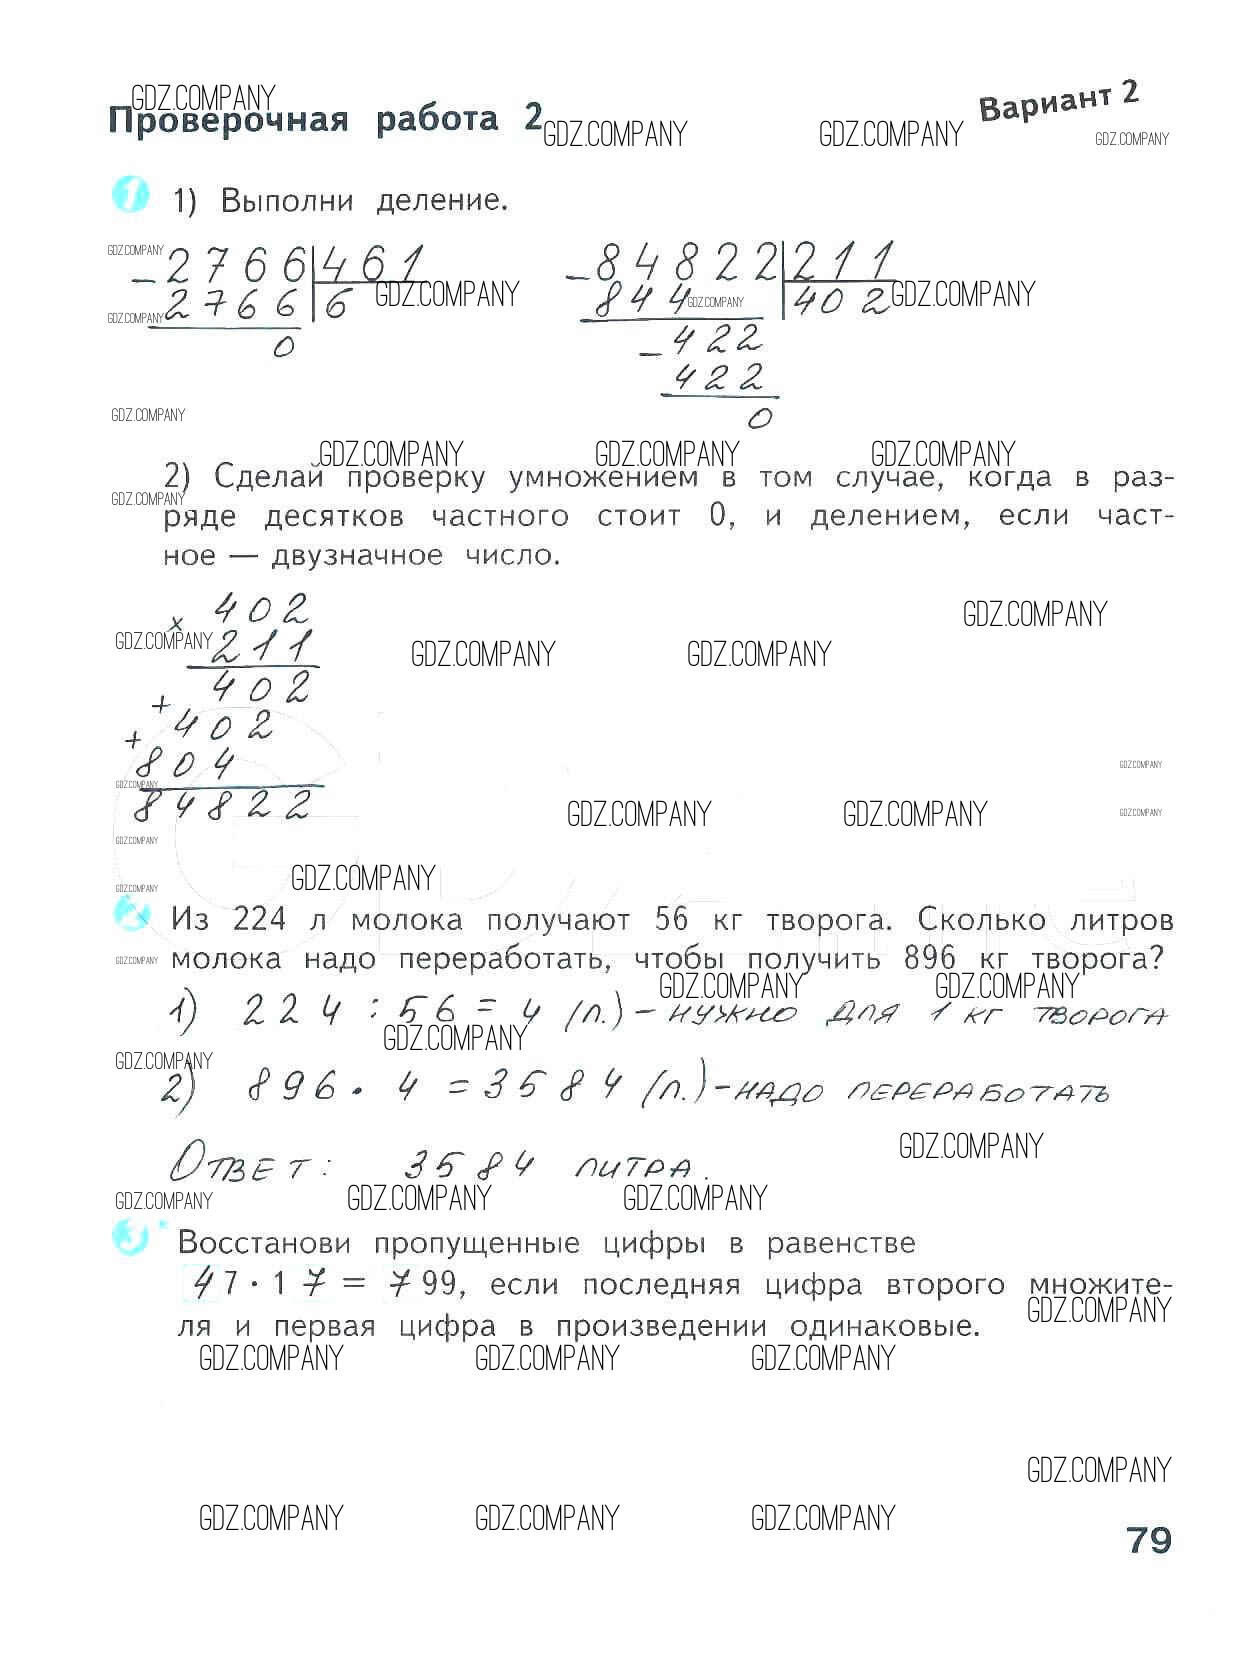 GDZ.COMPANY
Проверочная работа 2
Вариант 2
GDZ.COMPANY GDZ.COMPANY GDZ.COMPANY
1 1) Выполни деление.
GDZ.COMPANY
− 2766 461 − 84822 211
2766 6 GDZ.COMPANY 844 GDZ.COMPANY 402 GDZ.COMPANY
GDZ.COMPANY
0 − 422
422
0
GDZ.COMPANY
GDZ.COMPANY GDZ.COMPANY GDZ.COMPANY
2) Сделай проверку умножением в том случае, когда в раз-
GDZ.COMPANY
ряде десятков частного стоит 0, и делением, если част-
ное — двузначное число.
402
GDZ.COMPANY
× 211
GDZ.COMPANY GDZ.COMPANY GDZ.COMPANY
402
+ 402
+ 804
GDZ.COMPANY
GDZ.COMPANY
84822
GDZ.COMPANY GDZ.COMPANY GDZ.COMPANY
GDZ.COMPANY
GDZ.COMPANY
GDZ.COMPANY
2 Из 224 л молока получают 56 кг творога. Сколько литров
GDZ.COMPANY
молока надо переработать, чтобы получить 896 кг творога?
GDZ.COMPANY GDZ.COMPANY
1) 224 : 56 = 4 (л.) – нужно для 1 кг творога
GDZ.COMPANY
GDZ.COMPANY
2) 896 · 4 = 3584 (л.) – надо переработать
GDZ.COMPANY
Ответ: 3584 литра.
GDZ.COMPANY GDZ.COMPANY GDZ.COMPANY
3 Восстанови пропущенные цифры в равенстве
47 · 17 = 799, если последняя цифра второго множите-
GDZ.COMPANY
ля и первая цифра в произведении одинаковые.
GDZ.COMPANY GDZ.COMPANY GDZ.COMPANY
GDZ.COMPANY
GDZ.COMPANY GDZ.COMPANY GDZ.COMPANY
79